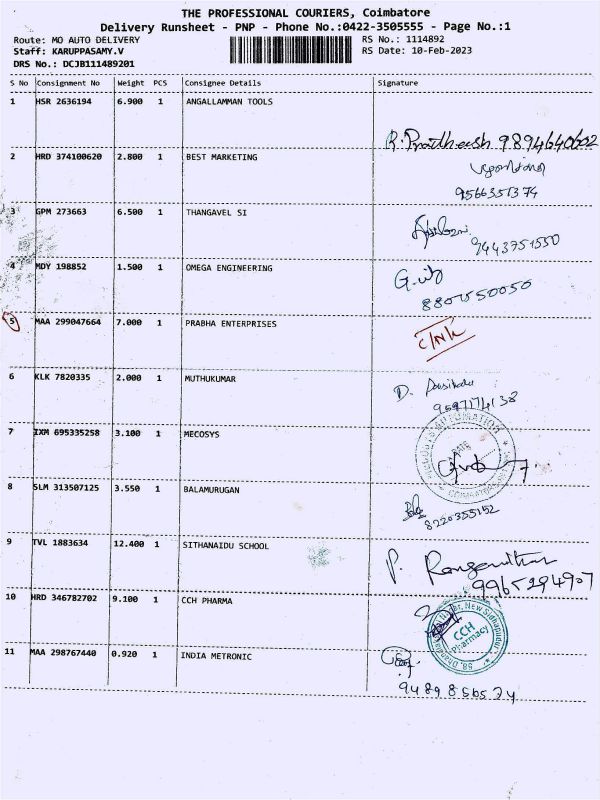 THE PROFESSIONAL COURIERS, Coimbatore
Delivery Runsheet - PNP - Phone No.:0422-3505555 - Page No.:1
Route: MO AUTO DELIVERY RS No.: 1114892
Staff: KARUPPASAMY.V RS Date: 10-Feb-2023
DRS No.: DCJB111489201
S No Consignment No Weight PCS Consignee Details Signature
1 HSR 2636194 6.900 1 ANGALLAMMAN TOOLS
R. Pradheesh 9894640602
2 HRD 374100620 2.800 1 BEST MARKETING
9566351374
3 GPM 273663 6.500 1 THANGAVEL SI
9443751550
4 MDY 198852 1.500 1 OMEGA ENGINEERING
8807550050
5 MAA 299047664 7.000 1 PRABHA ENTERPRISES
C/N/K
6 KLK 7820335 2.000 1 MUTHUKUMAR
D.
9597174138
7 IXM 695335258 3.100 1 MECOSYS
AUTOMATION
DATE
COIMBATORE
8 SLM 313507125 3.550 1 BALAMURUGAN
8220355152
9 TVL 1883634 12.400 1 SITHANAIDU SCHOOL
P.
9965294907
10 HRD 346782702 9.100 1 CCH PHARMA
Nagar, New Sidhapudur
CCH
Pharmacy
11 MAA 298767440 0.920 1 INDIA METRONIC
9489856574